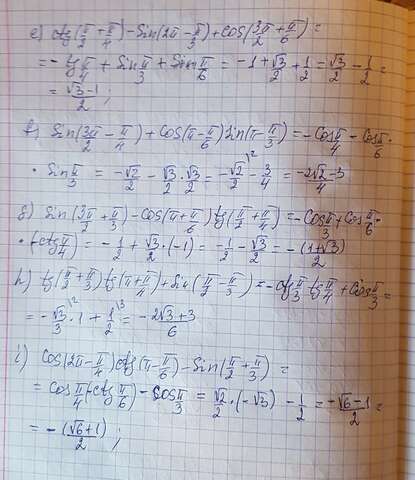 e) ctg(π/2 + π/4) - Sin(2π - π/3) + cos(3π/2 + π/6) =
= - tg π/4 + Sin π/3 + Sin π/6 = -1 + √3/2 + 1/2 = √3/2 - 1/2 =
= √3-1/2 ;
f) Sin(3π/2 - π/4) + Cos(π - π/6) Sin(π - π/3) = - Cos π/4 - Cos π/6 ·
· Sin π/3 = - √2/2 - √3/2 · √3/2 = - √2/2 \2 - 3/4 = -2√2-3/4
g) Sin(3π/2 + π/3) - Cos(π + π/6) tg(π/2 + π/4) = - Cos π/3 + Cos π/6 ·
· (-ctg π/4) = - 1/2 + √3/2 · (-1) = - 1/2 - √3/2 = - (1+√3)/2
h) tg(π/2 + π/3) tg(π + π/4) + Sin(π/2 - π/3) = - ctg π/3 tg π/4 + Cos π/3 =
= - √3/3 \2 · 1 + 1/2 \3 = -2√3+3/6
i) Cos(2π - π/4) ctg(π - π/6) - Sin(π/2 + π/3) =
= Cos π/4 (-ctg π/6) - Cos π/3 = √2/2 · (-√3) - 1/2 = -√6-1/2 =
= - (√6+1)/2 ;